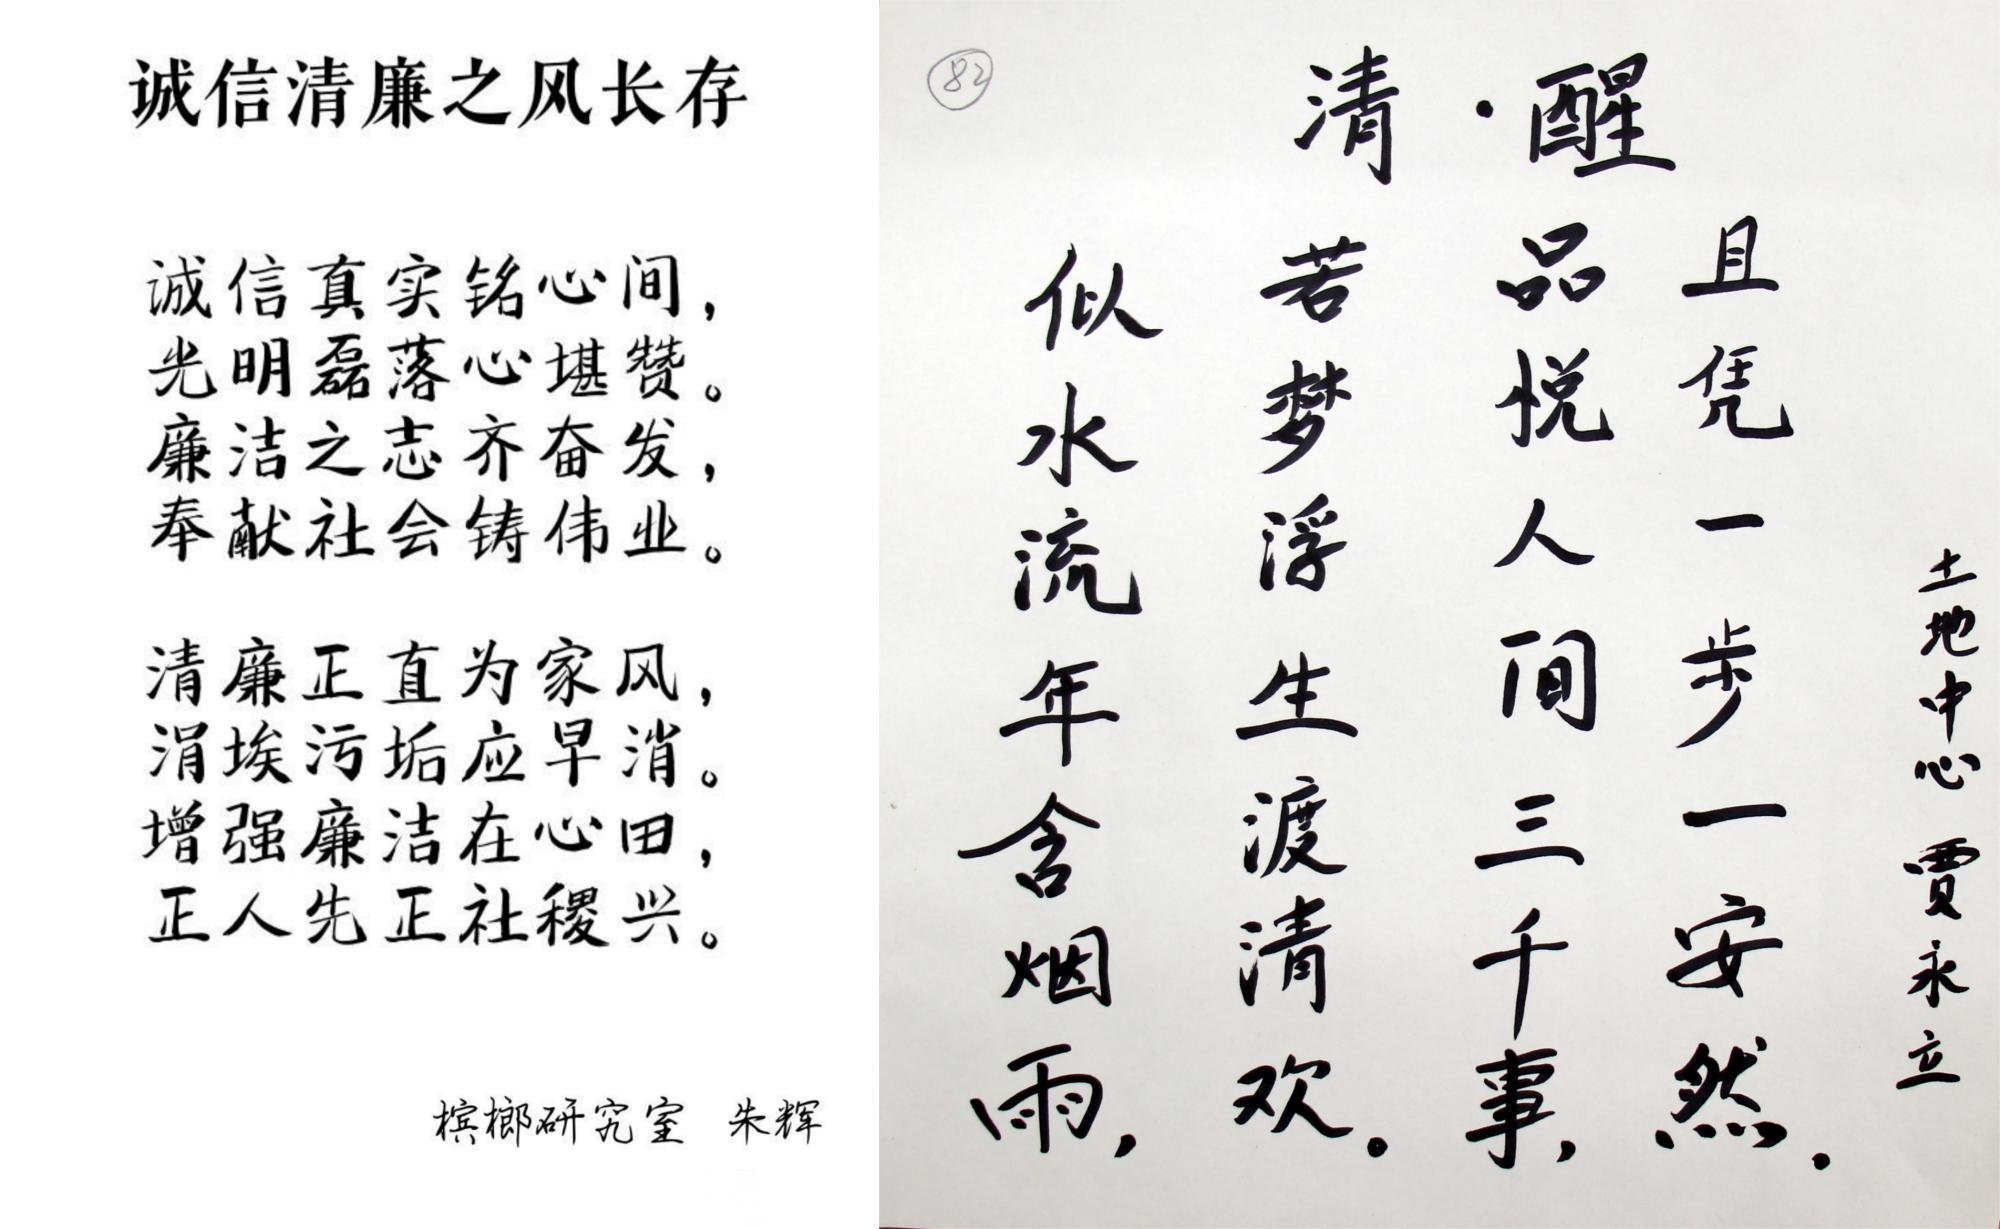 诚信清廉之风长存
诚信真实铭心间，
光明磊落心堪赞。
廉洁之志齐奋发，
奉献社会铸伟业。
清廉正直为家风，
涓埃污垢应早消。
增强廉洁在心田，
正人先正社稷兴。
槟榔研究室 朱辉
82
清·醒
似水流年含烟雨，
若梦浮生渡清欢。
品悦人间三千事，
且凭一步一安然。
土地中心 贾永立